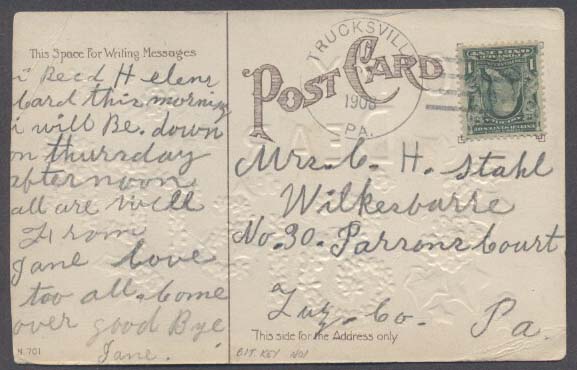 This Space For Writing Messages
i Recd Helens
Card this morning
i will Be. down
on thursday
afternoon
all are well
From
Jane love
too all. Come
over good Bye
Jane.
N. 701
TRUCKSVILLE
1908
PA.
POST CARD
1
Mrs. C. H. Stahl
Wilkesbarre
No. 30. Parrons Court
Luz. Co. Pa.
This side for the Address only